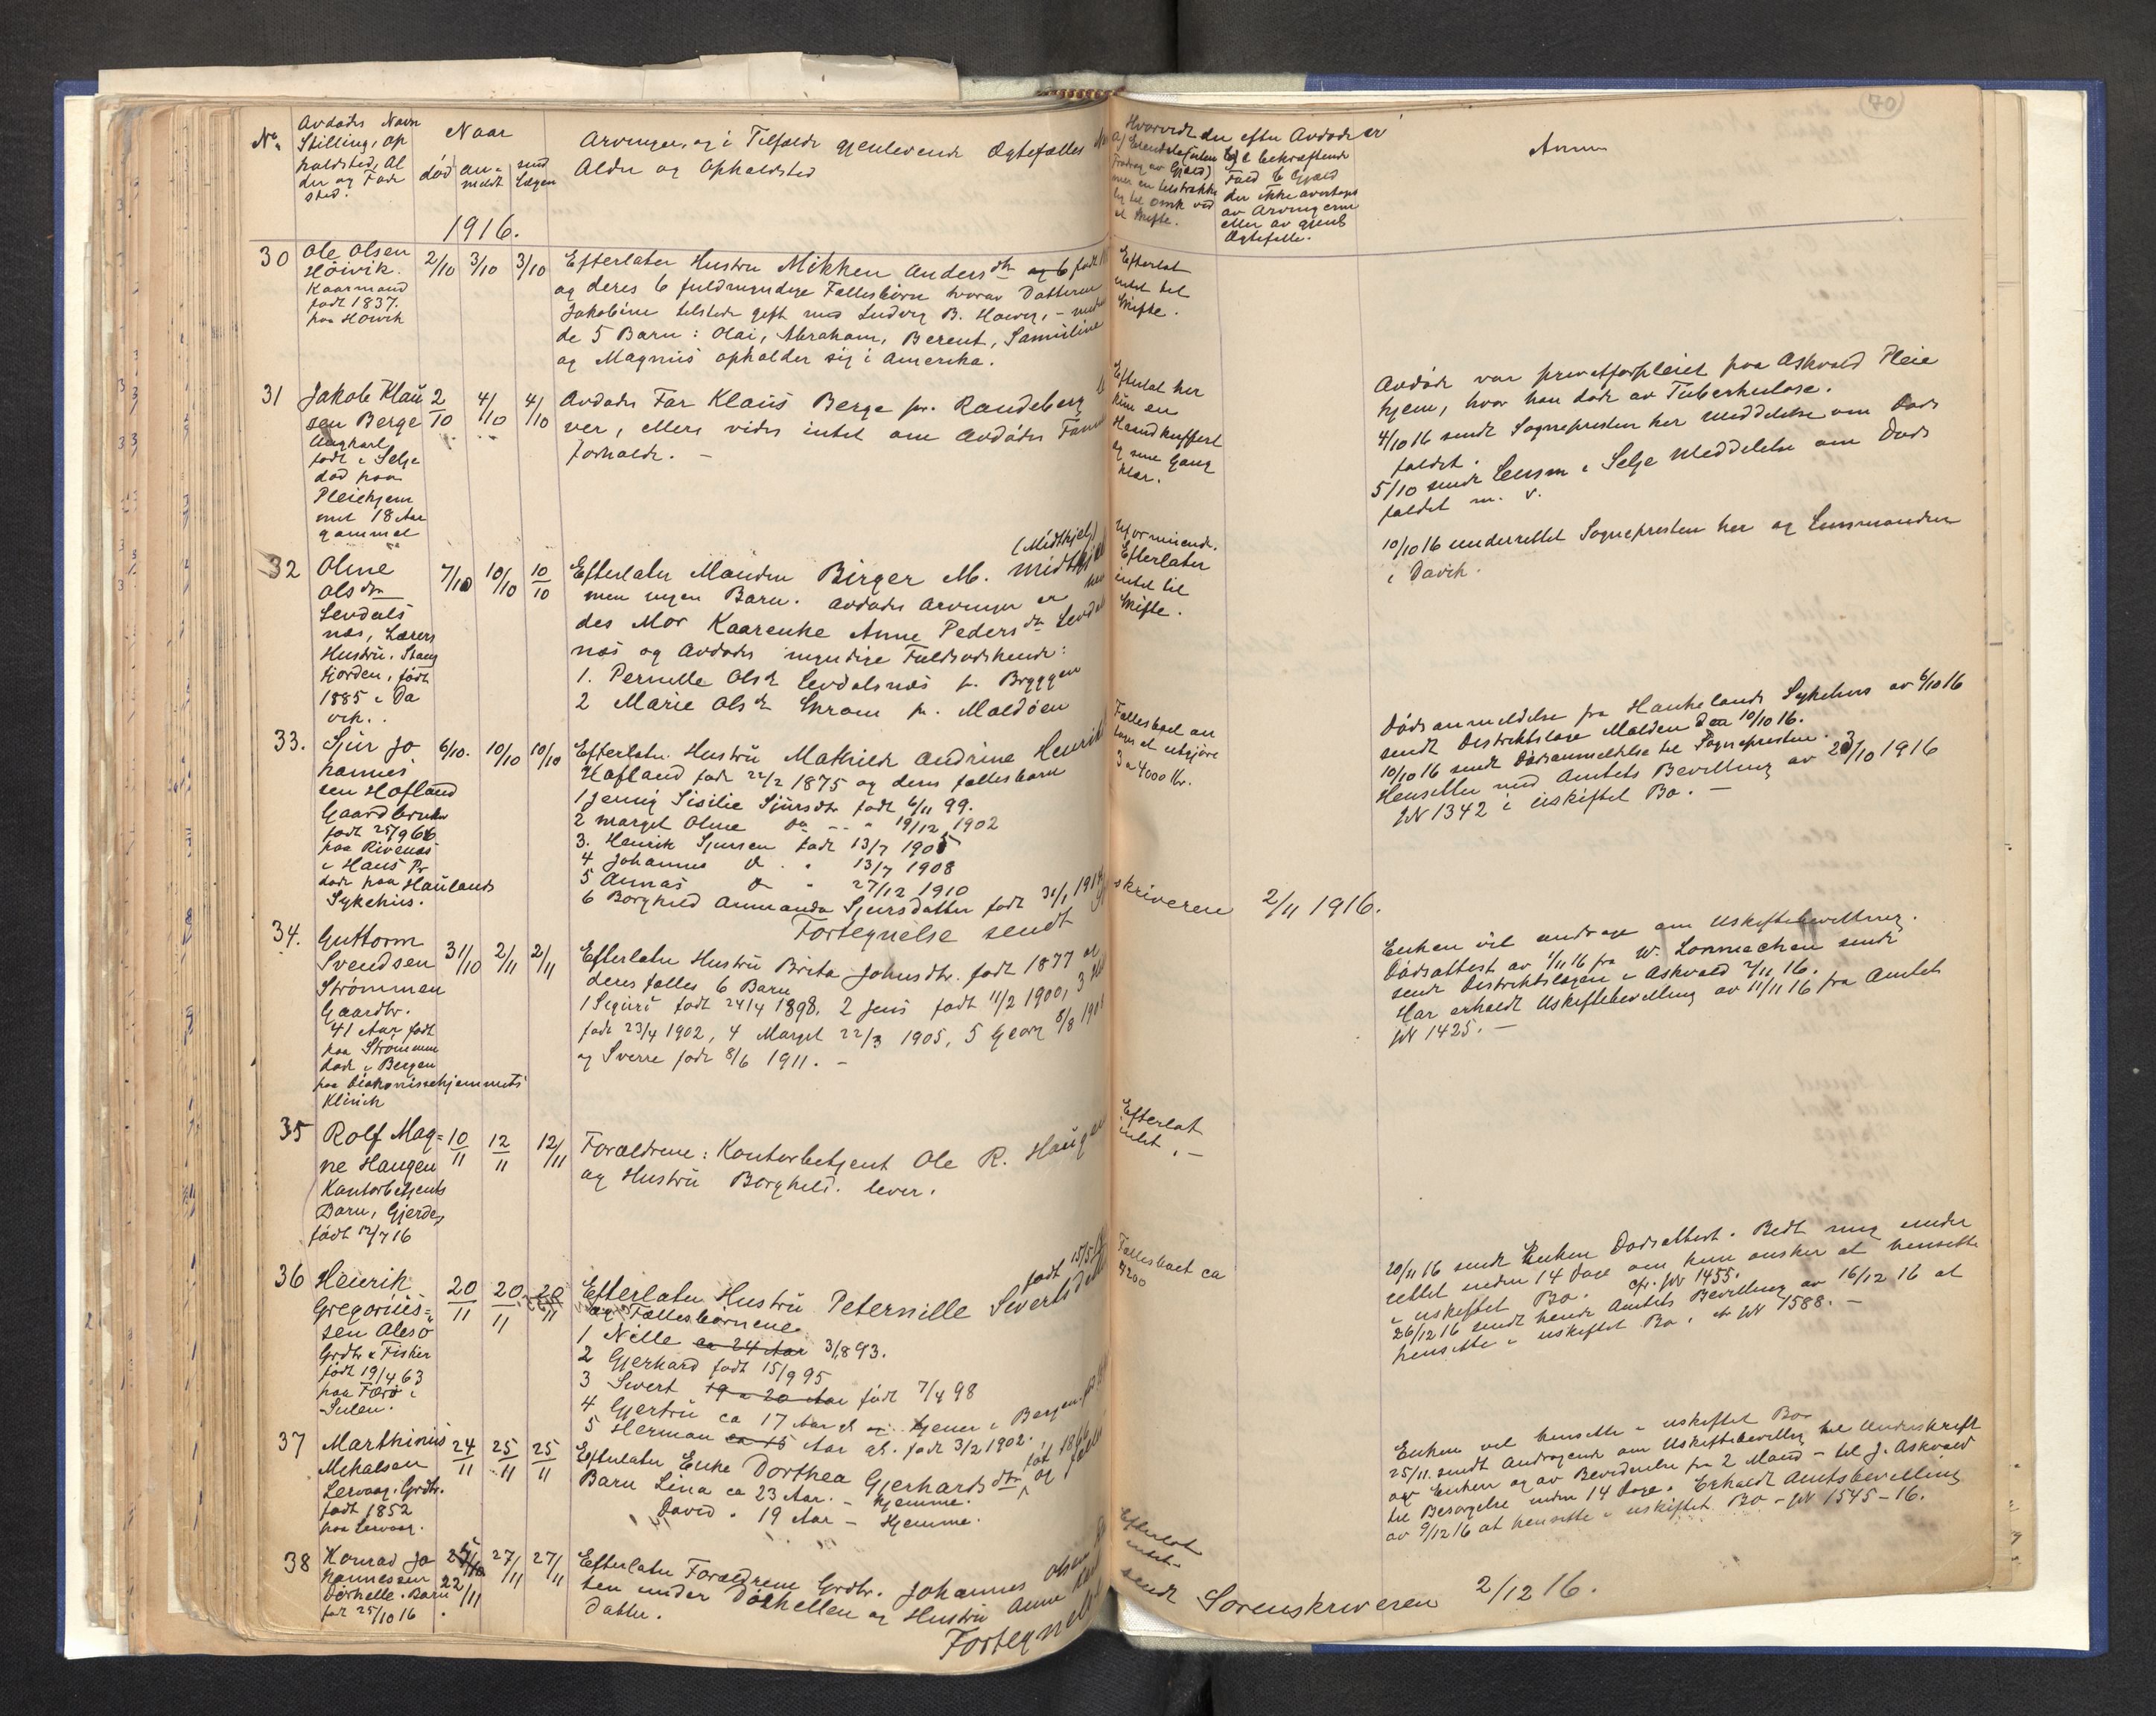 (70)
No.
Avdødes Navn
Stilling, op
holdsted, Al
der og Føde
sted.
Naar
død
an-
meldt
send
Lægen
Arvinger, og i Tilfælde gjenlevende Ægtefælles
Alder og Opholdsted
Hvorvidt der efter Avdøde er
Anm
der ikke overtages
av Arvingerne
eller av gjenl
Ægtefælle.
1916.
30
Ole Olsen
Høivik.
Kaarmand
født 1837.
paa Høivik
2/10 3/10 3/10
Efterlater Hustru Mikken Andersdtr og 6 født
og deres 6 fuldmyndige Fællesbørn hvorav Datteren
Jakobine tilstede gift med Ludvig B. Høivik, –
de 5 Barn: Olai, Abraham, Berent, Samuline
og Magnus opholder sig i Amerika.
Efterlot
intet til
Skifte.
31
Jakob Klau
sen Berge
Ungkarl
født i Selje
død paa
Pleiehjem
met 18 Aar
gammel
2/10 4/10 4/10
Avdødes Far Klaus Berge pr. Raudeberg
ver, ellers vides intet om Avdødes Familie
forholde. –
Efterlot her
kun en
Haandkuffert
og sine Gang
klær.
Avdøde var privatforpleiet paa Askvold Pleie
hjem, hvor han døde av Tuberkulose.
4/10 16 sendt Sognepresten her Meddelelse om Døds
faldet.
5/10 sendt Lensm i Selje Meddelelse om Døds
faldet m. v.
32
Oline
Olsdtr
Levdals
nes, Lærers
Hustru. Stang
fjorden, født
1885 i Da
vik.
7/10 10/10 10/10
(Midthjel)
Efterlater Manden Birger M. Midthjel
men ingen Barn. Avdødes Arvinger er
des Mor Kaarenke Anne Pedersdtr Levdals
nes og Avdødes myndige Fuldsødskende:
1. Pernille Olsdtr Levdalsnes pr. Bryggen
2 Marie Olsdtr Skram pr. Maldøen
Uformuende.
Efterlater
intet til
Skifte.
10/10 16 underrettet Sognepresten her og Lensmanden
i Davik.
33.
Sjur Jo
hannes
sen Hofland
Gaardbruker
født 25/9 66
paa Rivenes
i Haus Pr
døde paa Haukelands
Sykehus.
6/10. 10/10 10/10
Efterlater Hustru Mathilde Andrine Henriks
Hofland født 22/2 1875 og deres fællesbarn
1 Jenny Sisilie Sjursdtr født 6/11 99.
2 Margit Oline Do – – " 19/12 1902
3. Henrik Sjursen født 13/7 1905
4 Johannes do . " 13/7 1908
5 Annas do " 27/12 1910
6 Borghild Ammanda Sjursdatter født 31/1 1914
Fællesboet an
tages at utgjøre
3 a 4000 Kr.
Dødsanmeldelse fra Haukelands Sykehus av 6/10 16
sendt Distriktslæge Malden den 10/10 16.
10/10 16 sendt Dødsanmeldelse til Sognepresten.
Hensitter med Amtets Bevilling av 23/10 1916
JN 1342 i uskiftet Bo. –
Fortegnelse sendt
skriveren 2/11 1916.
34.
Guttorm
Svendsen
Strømmen
Gaardbr.
41 Aar født
paa Strømmen
døde i Bergen
paa Diakonissehjemmets
Klinik
31/10 2/11 2/11
Efterlater Hustru Brita Johnsdtr. født 1877 og
deres fælles 6 Barn
1 Sigurd født 24/4 1898. 2 Jens født 11/2 1900, 3
født 23/4 1902, 4 Margit 22/3 1905, 5 Georg 8/8
og Sverre født 8/6 1911. –
Enken vil andrage om Uskiftebevilling.
Dødsattest av 1/11 16 fra W. Lonmachen sendt
sendt Distriktslægen i Askvold 2/11 16.
Har erholdt Uskiftebevilling av 11/11 16 fra Amtet
JN 1425. –
35
Rolf Mag=
ne Haugen
Kontorbetjents
Barn, Gjerde,
født 12/7 16
10/11 12/11 12/11
Forældrene: Kontorbetjent Ole R. Haugen
og Hustru Borghild. lever.
Efterlot
intet. –
36
Henrik
Gregorius=
sen Alesø
Grdbr & Fisker
født 19/4 63
paa Færø i
Sulen.
20/11 20/11 20/11
født 15/5
Efterlater Hustru Peternille Sivertsdtr
og Fællesbørnene.
1 Nille ca 24 Aar 3/8 93.
2 Gjerhard født 15/9 95
3 Sivert 19 a 20 Aar født 7/4 98
4 Gjertru ca 17 Aar gl og tjener i Bergen.
5 Herman ca 15 Aar gl. født 3/2 1902.
Fællesboet ca
4200
20/11 16 sendt Enken Dødsattest. Bedt mig under
rettet inden 14 Dage om hun ønsker at hensitte
i uskiftet Bo. cfr. JN 1455.
26/12 16 sendt hende Amtets Bevilling av 16/12 16 at
hensitte i uskiftet Bo, cfr JN 1588. –
37
Marthinus
Mikalsen
Lervaag. Grdbr.
født 1852
paa Lervaag.
24/11 25/11 25/11
Efterlater Enke Dorthea Gjerhardsdtr og fælles
Barn Lina ca 23 Aar. – Hjemme.
David " 19 Aar – Hjemme.
Enken vil hensitte i uskiftet Bo
25/11. sendt Andragende om Uskiftebevilling til Underskrift
av Enken og av Bevidnelse fra 2 Mænd – til J. Askvold
til Besørgelse inden 14 Dage. Erholdt Amtsbevilling
av 9/12 16 at hensitte i uskiftet Bo – JN 1545 – 16.
38
Konrad Jo
hannessen
Dørhelle. Barn
født 25/10 16
22/11 27/11 27/11
Efterlater Forældrene Grdbr. Johannes Olsen
ten under Dørhellen og Hustru Anne
datter.
Efterlot
intet.
Fortegnelse
sendt Sorenskriveren 2/12 16.